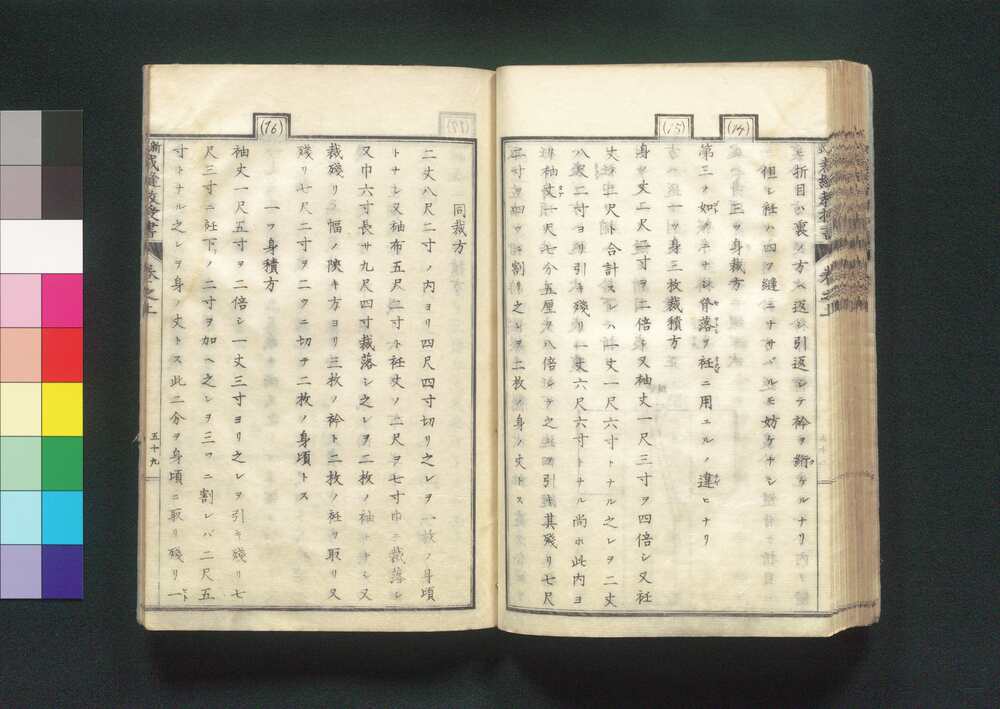 折目ハ裏ノ方ヘ返シ引返シテ衿ヲ絎ケルナリ
但シ衽ハ四ツ縫ニサザルモ妨ケナシ
(14)
三ツ身裁方
第三ノ如クナセバ脊落ヲ衽ニ用エルノ違ヒナリ
(15)
一ツ身三枚裁積方
身ノ丈二尺二寸ヲ二倍ト又袖丈一尺三寸ヲ四倍シ又衽
丈ノ二尺ト合計スレハ一丈一尺六寸トナル之レヲ二丈
八尺二寸ヨリ引キ殘リ一丈六尺六寸トナル尚ホ此内ヨ
リ袖丈一尺七分五厘ヲ八倍シテ之レヲ引キ其殘リ七尺
二寸 割リ之レヲ二枚ノ身ノ丈トス
同裁方
二丈八尺二寸ノ内ヨリ四尺四寸切リ之レヲ一枚ノ身頃
トナシ又袖布五尺二寸ト衽丈ノ二尺ヲ七寸巾ニ裁落シ
又巾六寸長サ九尺四寸裁落シ之レヲ二枚ノ袖トナシ又
裁殘リノ幅ノ陜キ方ヨリ三枚ノ衿ト二枚ノ衽ヲ取リ又
殘リ七尺二寸ヲ二ツニ切テ二枚ノ身頃トス
(16)
一ツ身積方
袖丈一尺五寸ヲ二倍シ一丈三寸ヨリ之レヲ引キ殘リ七
尺三寸ニ衽下ノ二寸ヲ加ヘ之レヲ三ツニ割レバ二尺五
寸トナル之レヲ身ノ丈トス此二分ヲ身頃ニ取リ殘リ一
新 裁縫教授書
卷之上
五十九